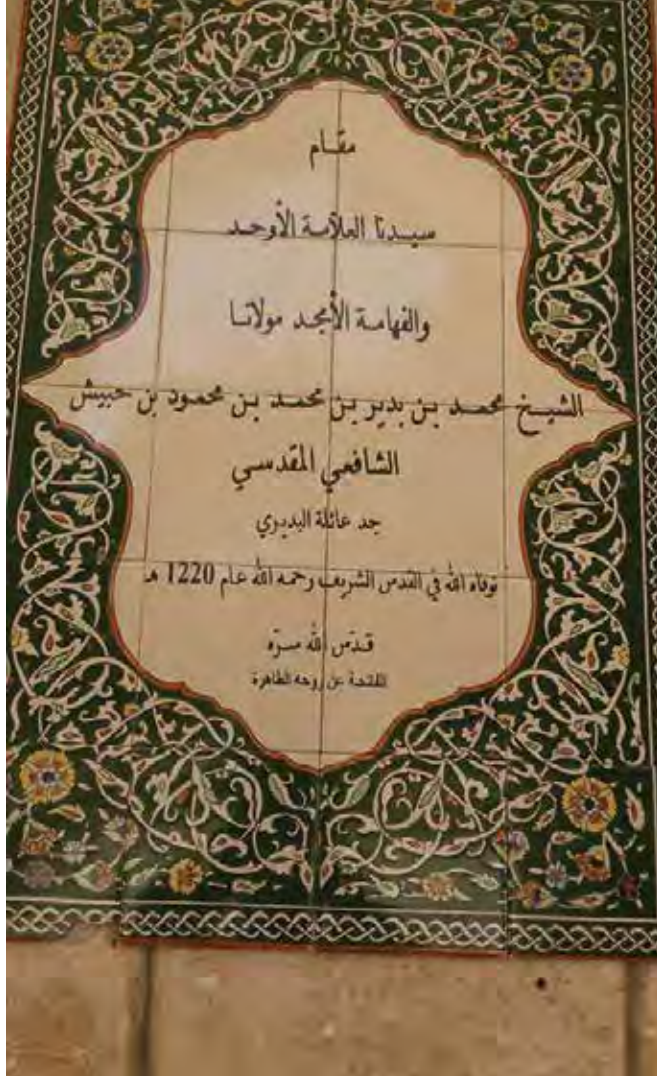 مقام
سيدنا العلامة الأوحد
والفهامة الأمجد مولانا
الشيخ محمد بن بدير بن محمد بن محمود بن حبيش
الشافعي المقدسي
جد عائلة البديري
توفاه الله في القدس الشريف رحمه الله عام 1220 هـ
قدّس الله سرّه
الفاتحة عن روحه الطاهرة